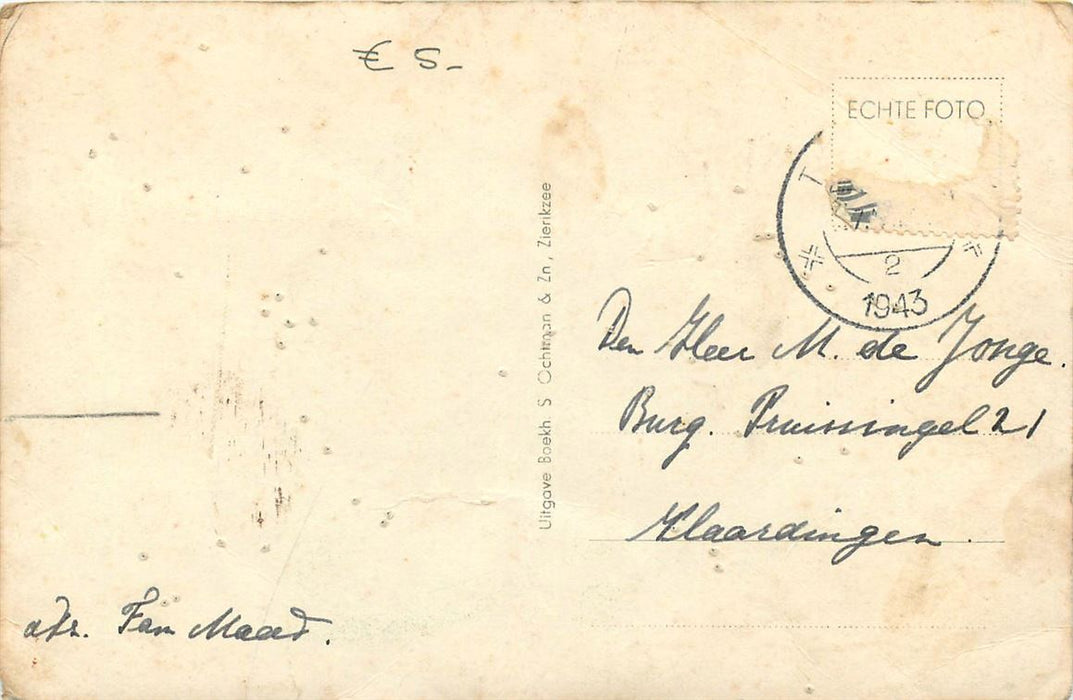 € 5-
ECHTE FOTO
T
2
1943
Uitgave Boekh. S Ochtman & Zn, Zierikzee
Den Heer M. de Jonge.
Burg. Pruissingel 21
Vlaardingen.
afz. Fam Maad.